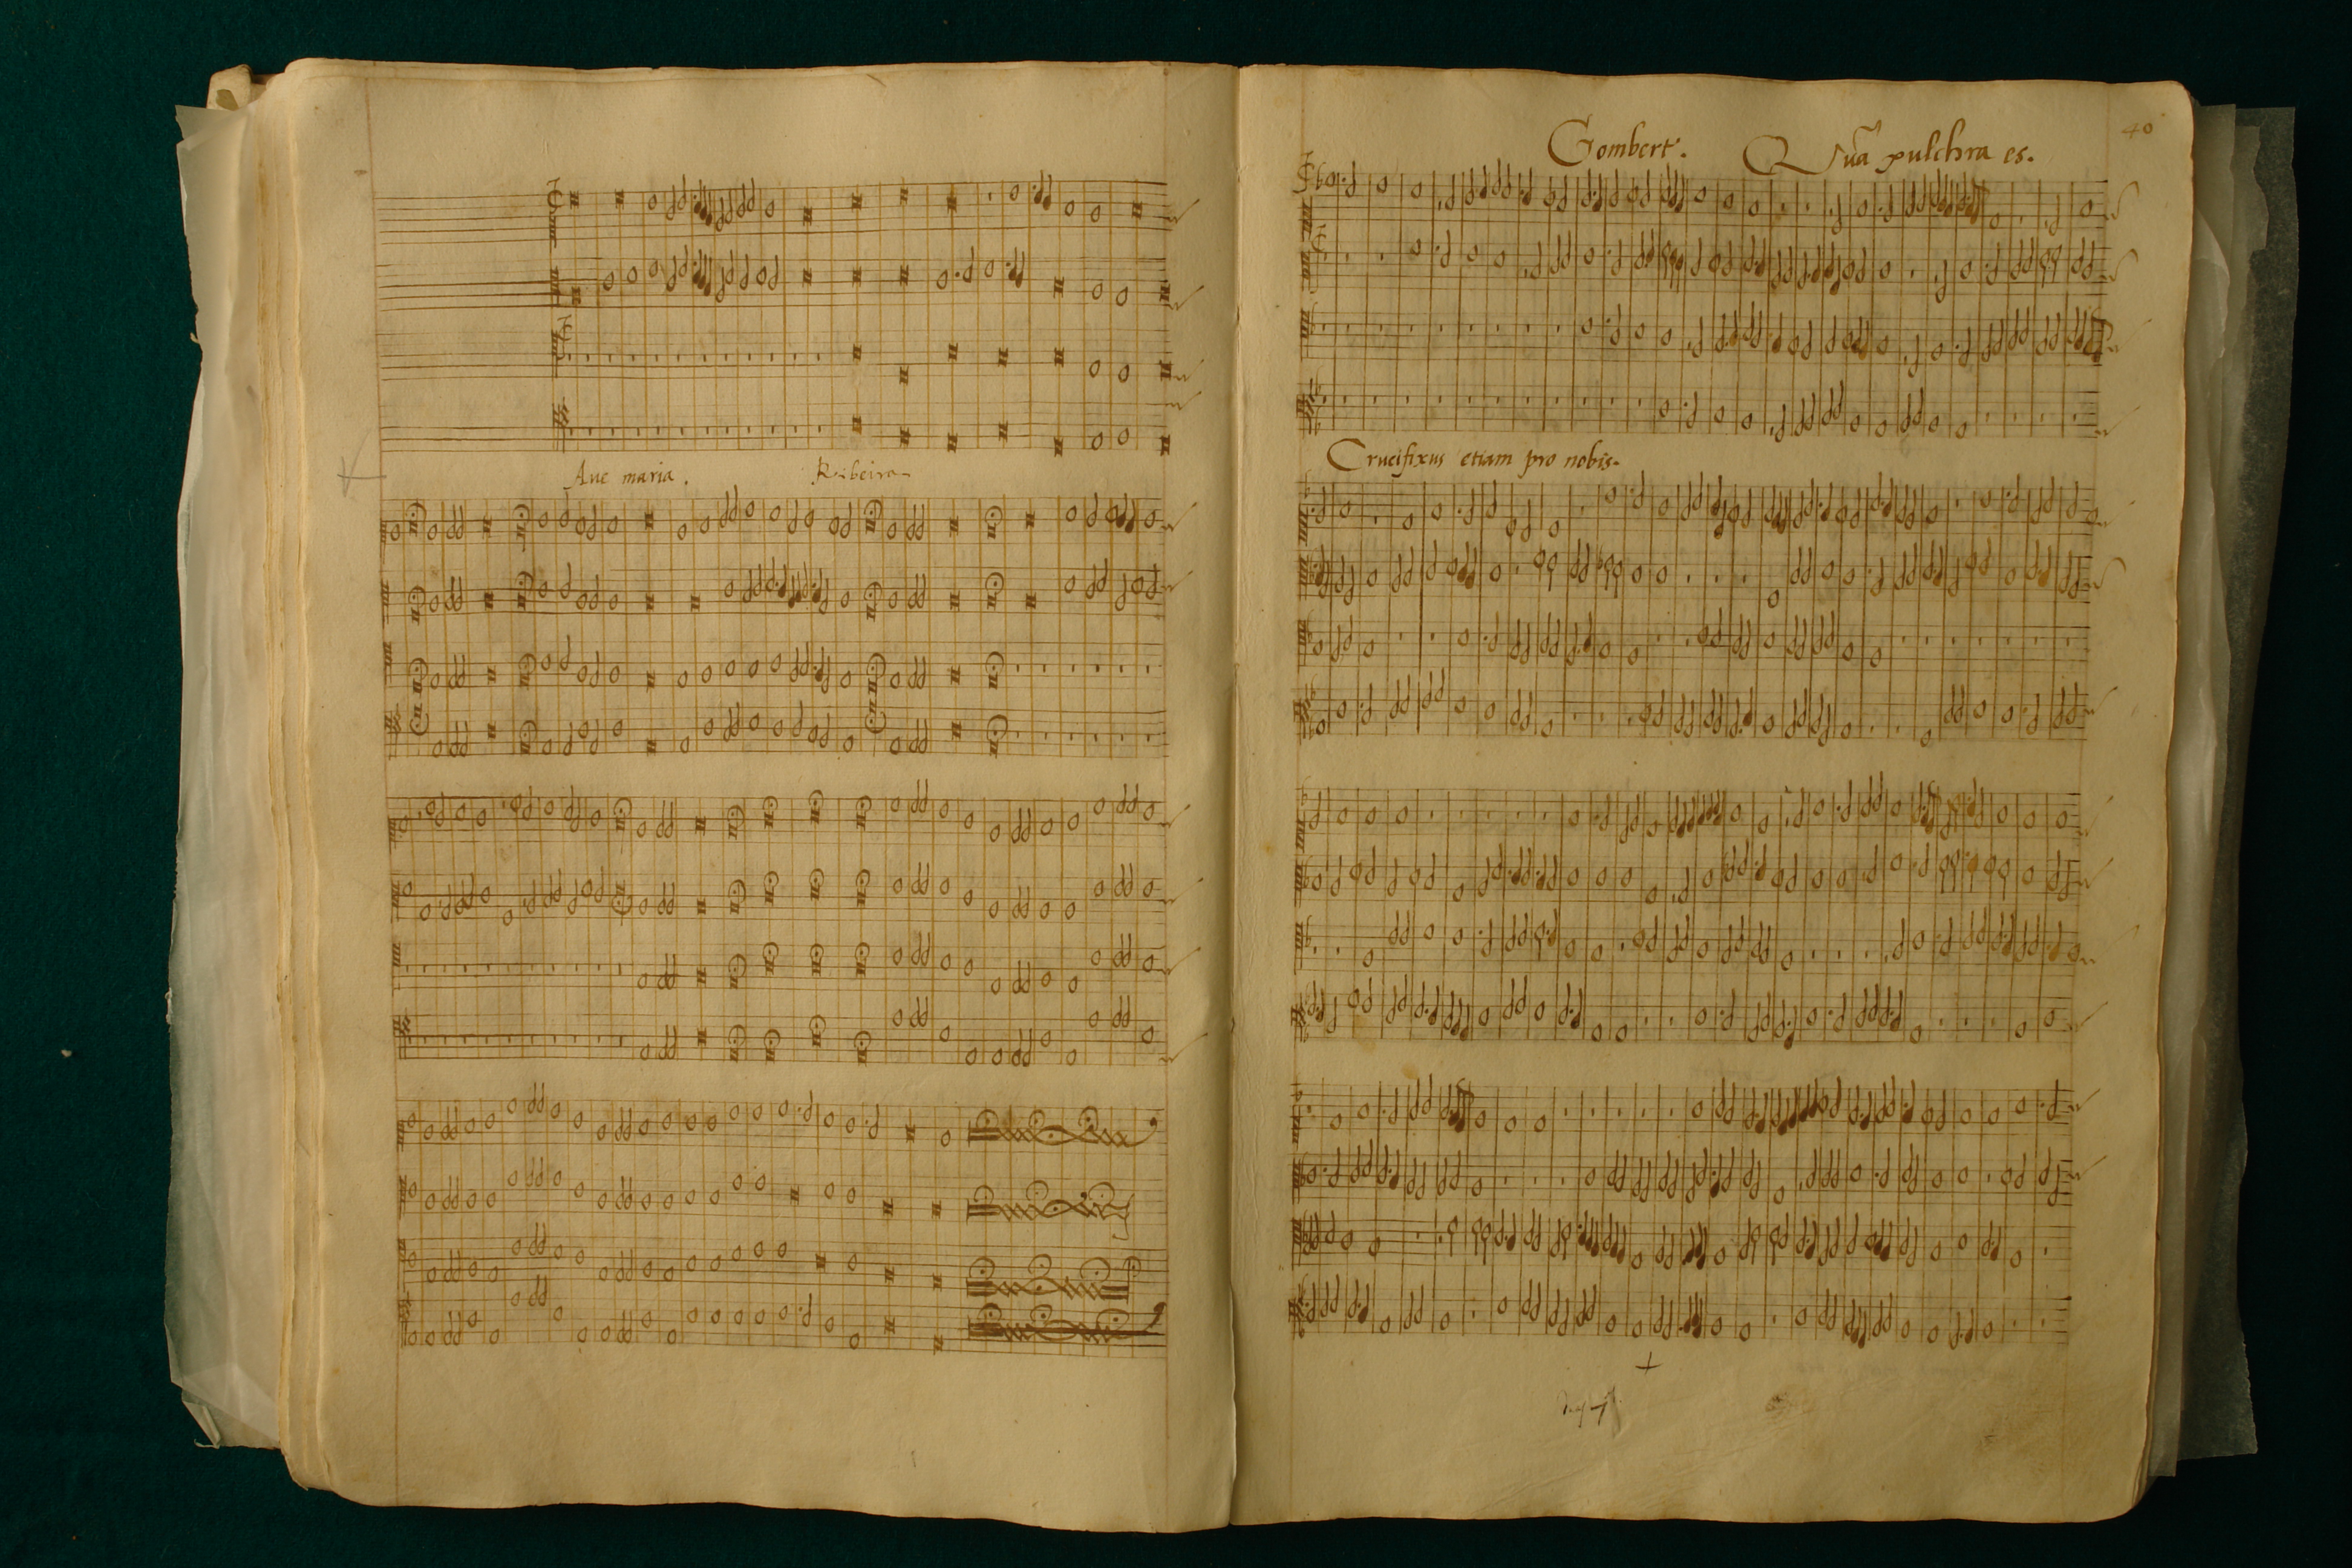 Aue maria. Ribeiro
40
Gombert. Quã pulchra es.
Crucifixus etiam pro nobis.